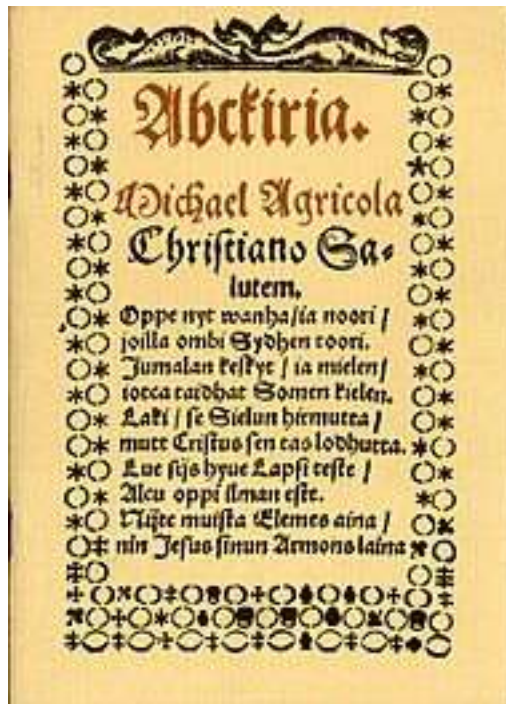 Abckiria.
Michael Agricola
Christiano Sa⸗
lutem.
Oppe nyt wanha/ia noori/
joilla ombi Sydhen toori.
Jumalan keskyt/ia mielen/
iotca taidhat Somen kielen.
Laki/se Sielun hirmutta/
mutt Cristus sen tas lodhutta.
Lue sijs hyue Lapsi teste/
Alcu oppi ilman este.
Nijte muista Elemes aina/
nin Jesus sinun Armons laina